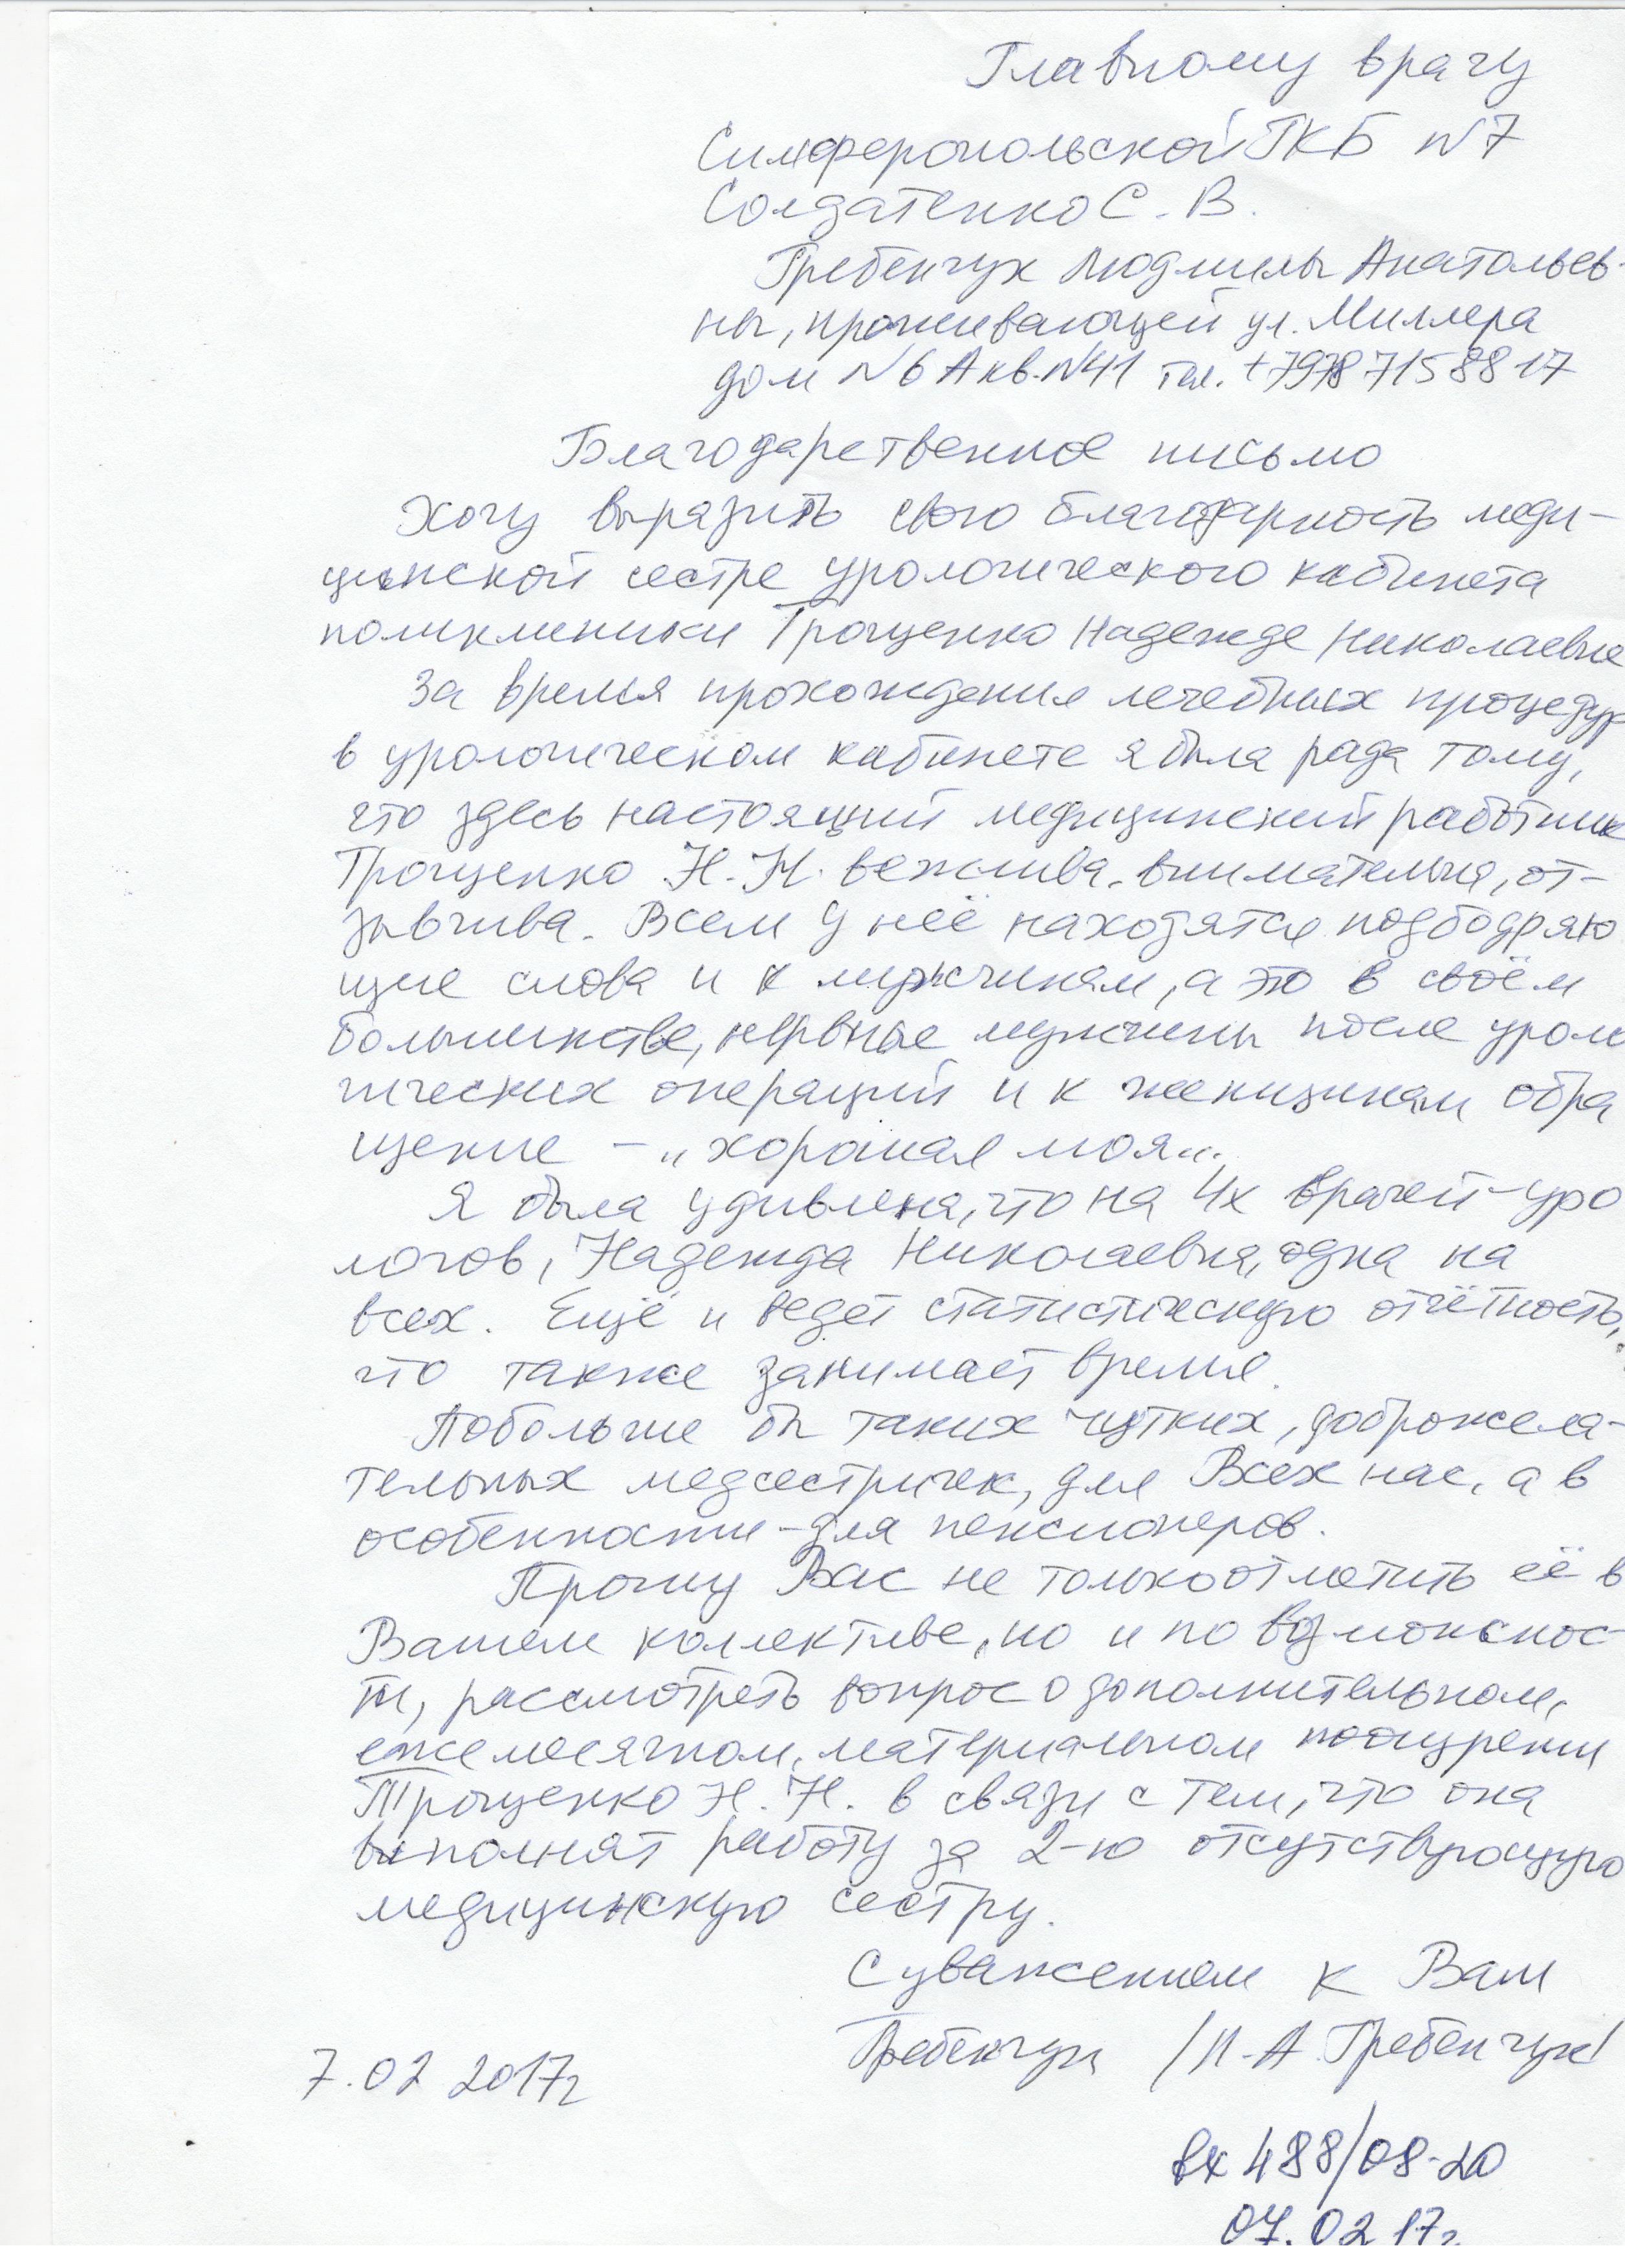 Главному врачу
Симферопольской ГКБ N7
Солдатенко С.В.
Гребенчук Людмилы Анатольев-
ны, проживающей ул. Миллера
дом N6А кв.N41 тел. +7978 715 88 17
Благодарственное письмо
Хочу выразить свою благодарность меди-
цинской сестре урологического кабинета
поликлиники Трощенко Надежде Николаевне
За время прохождения лечебных процедур
в урологическом кабинете я была рада тому,
что здесь настоящий медицинский работник
Трощенко Н.Н. вежлива, внимательна, от-
зывчива. Всем у неё находятся подбодряю
щие слова и к мужчинам, а это в своём
большинстве, нервные мужчины после уроло
гических операций и к женщинам обра
щение – „хорошая моя".
Я была удивлена, что на 4х врачей-уро
логов, Надежда Николаевна, одна на
всех. Ещё и ведёт статистическую отчётность,
что также занимает время.
Побольше бы таких чутких, доброжела-
тельных медсестричек, для Всех нас, а в
особенности-для пенсионеров.
Прошу Вас не только отметить её в
Вашем коллективе, но и по возможнос-
ти, рассмотреть вопрос о дополнительном,
ежемесячном, материальном поощрении
Трощенко Н.Н. в связи с тем, что она
выполнят работу за 2-ю отсутствующую
медицинскую сестру.
С уважением к Вам
Гребенчук /Л.А. Гребенчук/
7.02 2017г
вх 488/08-20
07.02 17г